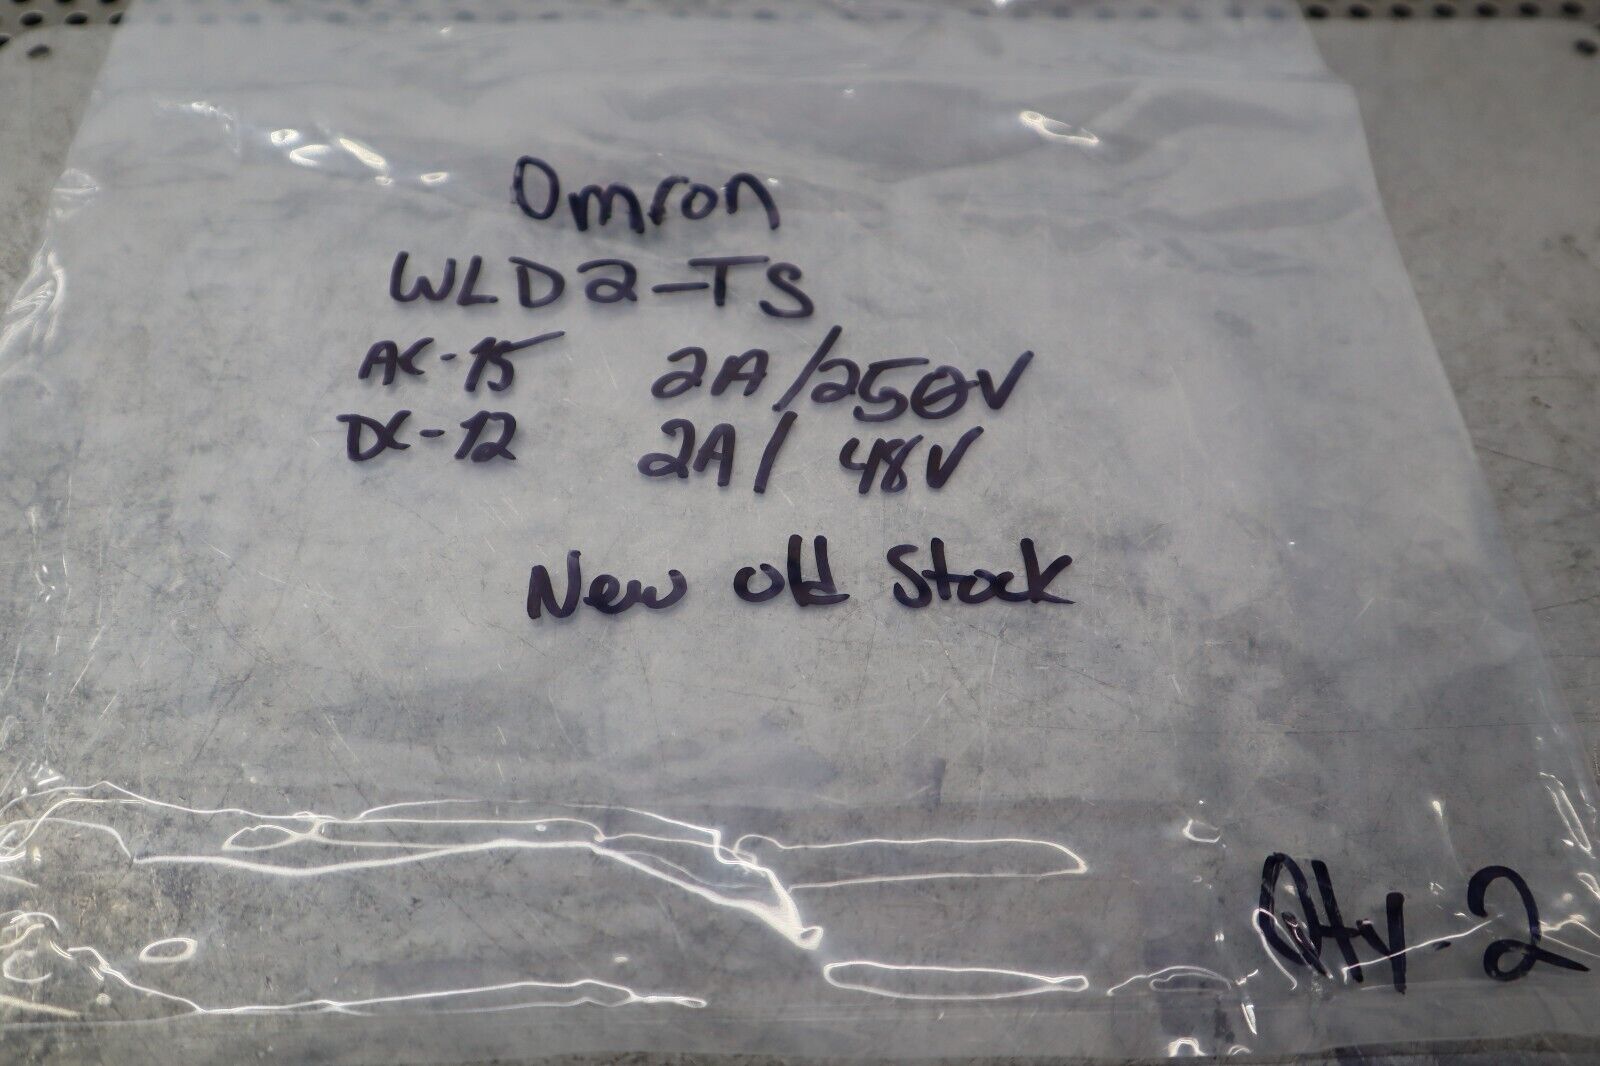 Omron
WLD2-TS
AC-15 2A/250V
DC-12 2A/ 48V
New old Stock
Qty. 2